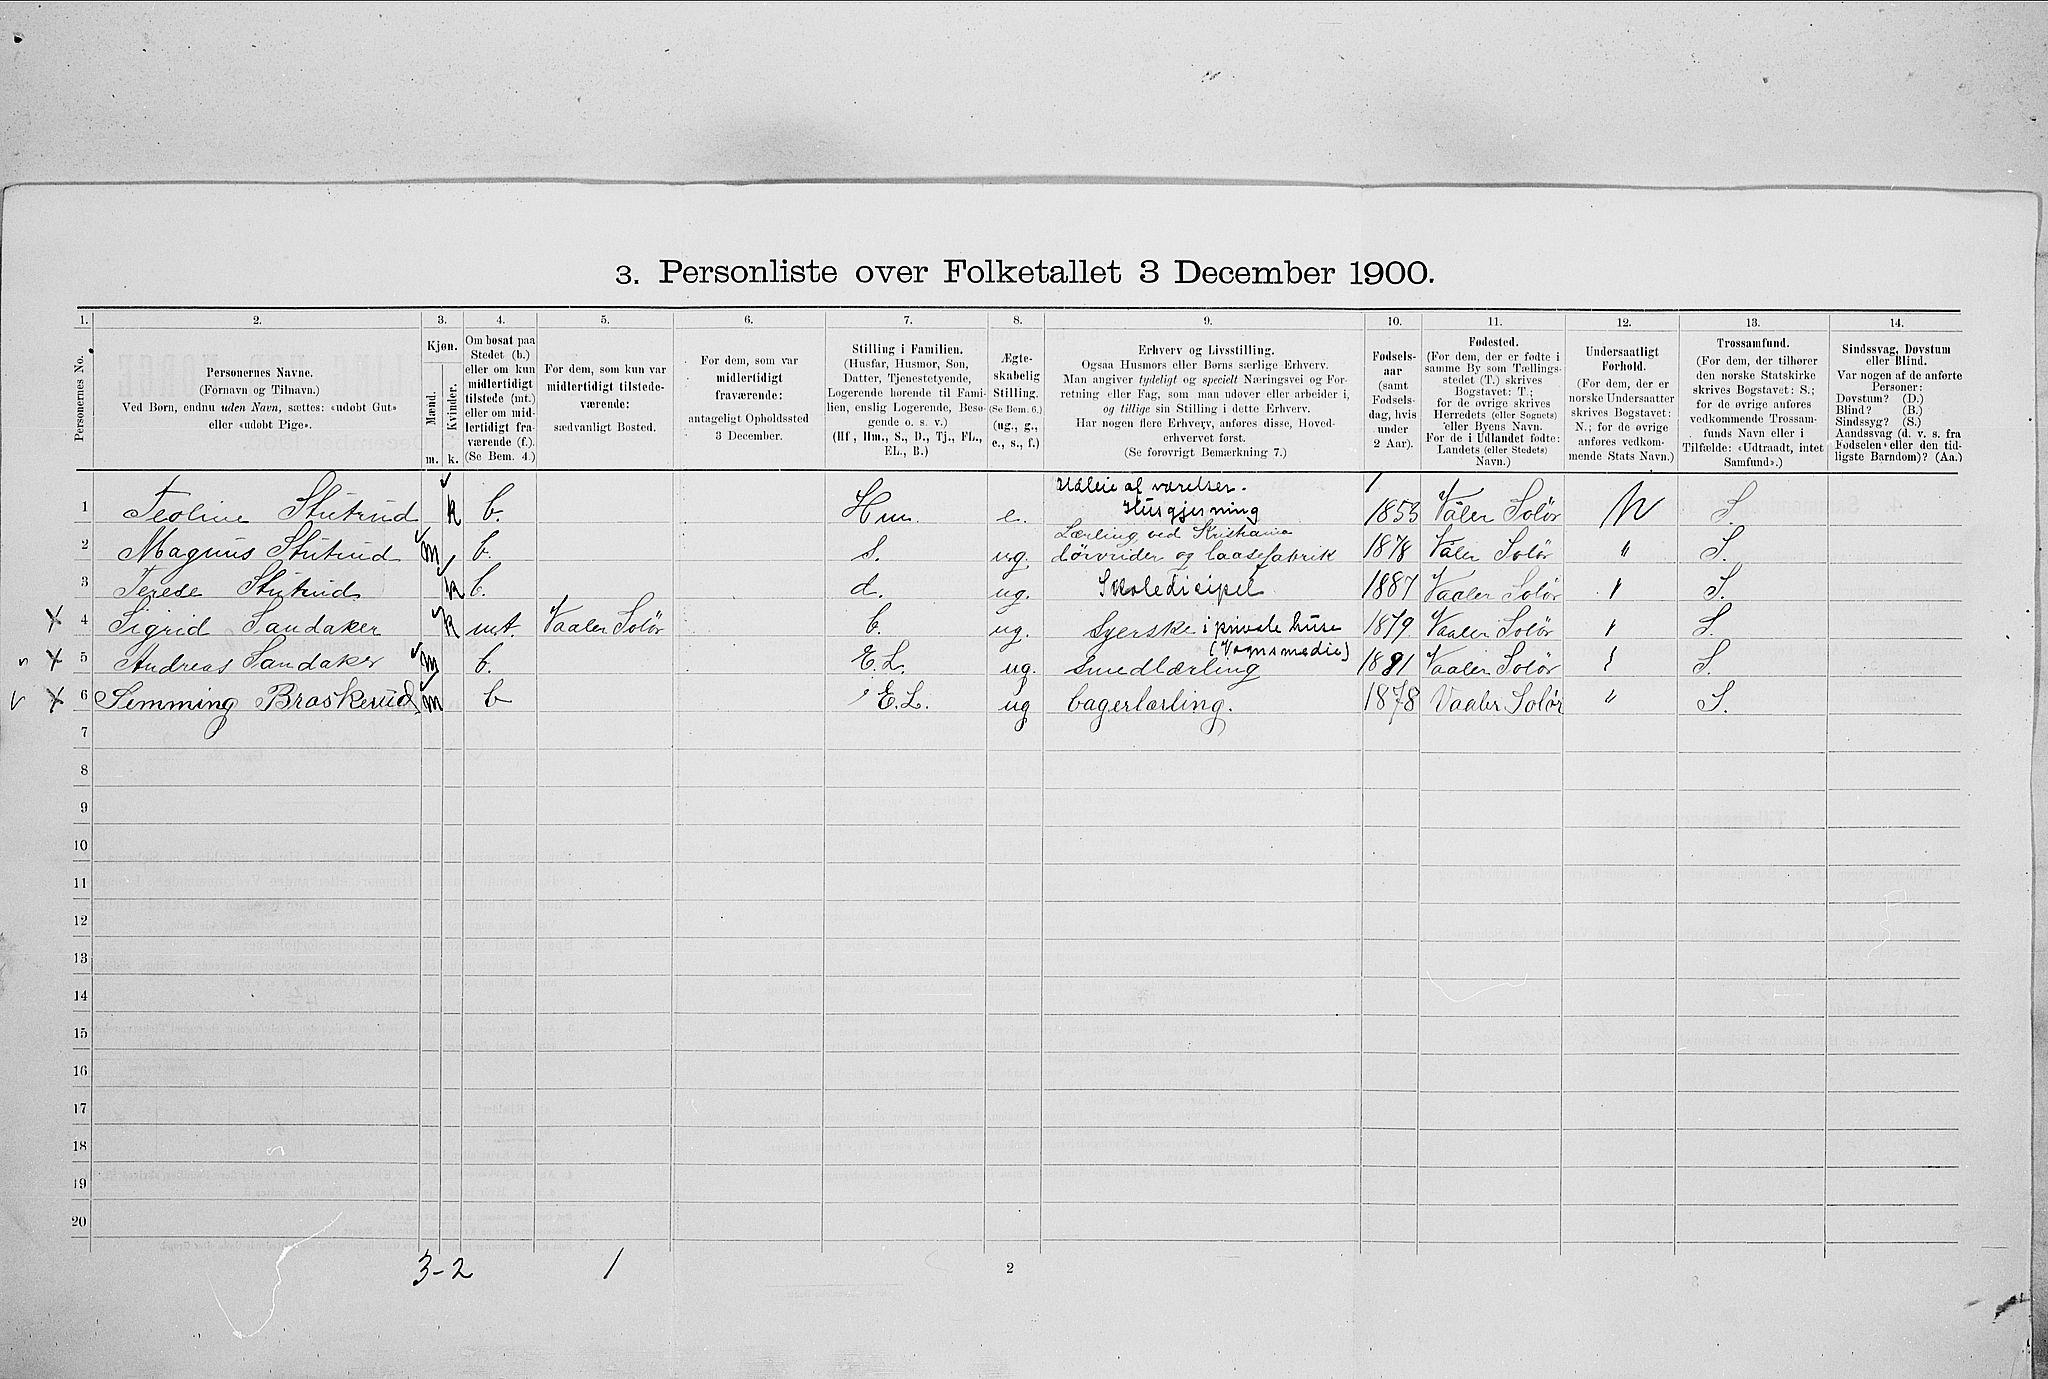 3. Personliste over Folketallet 3 December 1900.
1. 2. 3. 4. 5. 6. 7. 8. 9. 10. 11. 12. 13. 14.
Personernes No.
Personernes Navne.
(Fornavn og Tilnavn.)
Ved Børn, endnu uden Navn, sættes: «udøbt Gut»
eller «udøbt Pige».
Kjøn.
Mænd.
Kvinder.
m. k.
Om bosat paa
Stedet (b.)
eller om kun
midlertidigt
tilstede (mt.)
eller om mid-
lertidigt fra-
værende (f.).
(Se Bem. 4.)
For dem, som kun var
midlertidigt tilstede-
værende:
sædvanligt Bosted.
For dem, som var
midlertidigt
fraværende:
antageligt Opholdssted
3 December.
Stilling i Familien.
(Husfar, Husmor, Søn,
Datter, Tjenestetyende,
Logerende hørende til Fami-
lien, enslig Logerende, Besø-
gende o. s. v.)
(Hf., Hm., S., D., Tj., FL.,
EL., B.)
Ægte-
skabelig
Stilling.
(Se Bem. 6.)
(ug., g.,
e., s., f.)
Erhverv og Livsstilling.
Ogsaa Husmors eller Børns særlige Erhverv.
Man angiver tydeligt og specielt Næringsvei og For-
retning eller Fag, som man udover eller arbeider i,
og tillige sin Stilling i dette Erhverv.
Har nogen flere Erhverv, anføres disse, Hoved-
erhvervet først.
(Se forøvrigt Bemærkning 7.)
Fødsels-
aar
(samt
Fødsels-
dag, hvis
under
2 Aar).
Fødested.
(For dem, der er fødte i
samme By som Tællings-
stedet (T.) skrives
Bogstavet: T.;
for de øvrige skrives
Herredets (eller Sognets)
eller Byens Navn.
For de i Udlandet fødte:
Landets (eller Stedets)
Navn.)
Undersaatligt
Forhold.
(For dem, der er
norske Undersaatter
skrives Bogstavet:
N.; for de øvrige
anføres vedkom-
mende Stats Navn.)
Trossamfund.
(For dem, der tilhører
den norske Statskirke
skrives Bogstavet: S.;
for de øvrige anføres
vedkommende Trossam-
funds Navn eller i
Tilfælde: «Udtraadt, intet
Samfund».)
Sindssvag, Døvstum
eller Blind.
Var nogen af de anførte
Personer:
Døvstum? (D.)
Blind? (B.)
Sindssyg? (S.)
Aandssvag (d. v. s. fra
Fødselen eller den tid-
ligste Barndom)? (Aa.)
Udleie af værelser.
1 Teoline Stutrud k b. Hm. e. Husgjerning 1853 Våler Solør N S.
Lærling ved Kristiania
2 Magnus Stutrud m b. s. ug. dørvrider og laasefabrik 1878 Våler Solør " S.
3 Terese Stutrud k b. d. ug. Skoledicipel 1887 Vaaler Solør " S.
4 Sigrid Sandaker k mt. Vaaler Solør b. ug. Syerske i private huse 1879 Vaaler Solør " S.
(Vognsmedie)
5 Andreas Sandaker m b. E.L. ug. Smedlærling 1881 Vaaler Solør " S.
6 Semming Braskerud m b E.L. ug bagerlærling. 1878 Vaaler Solør " S.
7
8
9
10
11
12
13
14
15
16
17
18
19
20
3-2 1 2